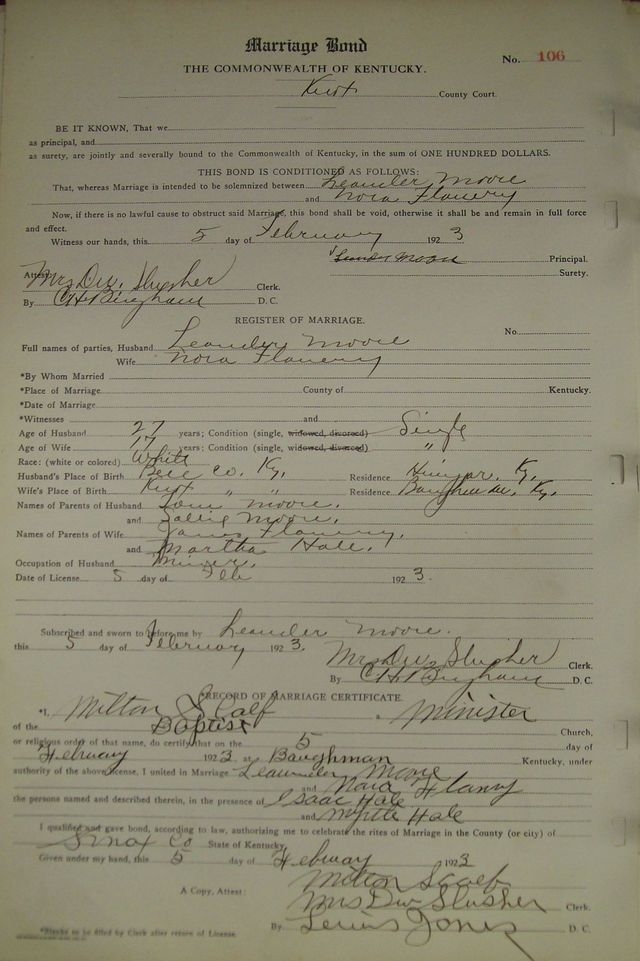 Marriage Bond
No. 106
THE COMMONWEALTH OF KENTUCKY.
Knox County Court.
BE IT KNOWN, That we
as principal, and
as surety, are jointly and severally bound to the Commonwealth of Kentucky, in the sum of ONE HUNDRED DOLLARS.
THIS BOND IS CONDITIONED AS FOLLOWS:
That, whereas Marriage is intended to be solemnized between Leander Moore
and Nora Flanery
Now, if there is no lawful cause to obstruct said Marriage, this bond shall be void, otherwise it shall be and remain in full force
and effect.
Witness our hands, this 5 day of February 1923
Leander Moore Principal.
Attest: Surety.
Mrs Dw. Slusher Clerk.
By CH Bingham D. C.
REGISTER OF MARRIAGE.
No.
Full names of parties, Husband Leander Moore
Wife Nora Flanery
*By Whom Married
*Place of Marriage County of Kentucky.
*Date of Marriage
*Witnesses and
Age of Husband 27 years; Condition (single, widowed, divorced) Single
Age of Wife 17 years; Condition (single, widowed, divorced) "
Race: (white or colored) White
Husband's Place of Birth Bell Co. Ky. Residence Ky.
Wife's Place of Birth Knox " " Residence Ky.
Names of Parents of Husband Moore.
and Moore.
Names of Parents of Wife James Flanery.
and Martha Hale.
Occupation of Husband Miner.
Date of License 5 day of Feb 1923.
Subscribed and sworn to before me by Leander Moore.
this 5 day of February 1923.
Mrs Dw Slusher Clerk.
By CH Bingham D. C.
RECORD OF MARRIAGE CERTIFICATE.
*I, Milton Scalf a Minister
of the Baptist Church,
or religious order of that name, do certify that on the 5 day of
February 1923 at Baughman Kentucky, under
authority of the above license, I united in Marriage Leander Moore
and Nora Flanry
the persons named and described therein, in the presence of Isaac Hale
and Myrtle Hale
I qualified and gave bond, according to law, authorizing me to celebrate the rites of Marriage in the County (or city) of
Knox Co State of Kentucky.
Given under my hand, this 5 day of February 1923
Milton Scalf
A Copy, Attest: Mrs Dw Slusher Clerk.
By Lewis Jones D. C.
*Blanks to be filled by Clerk after return of License.